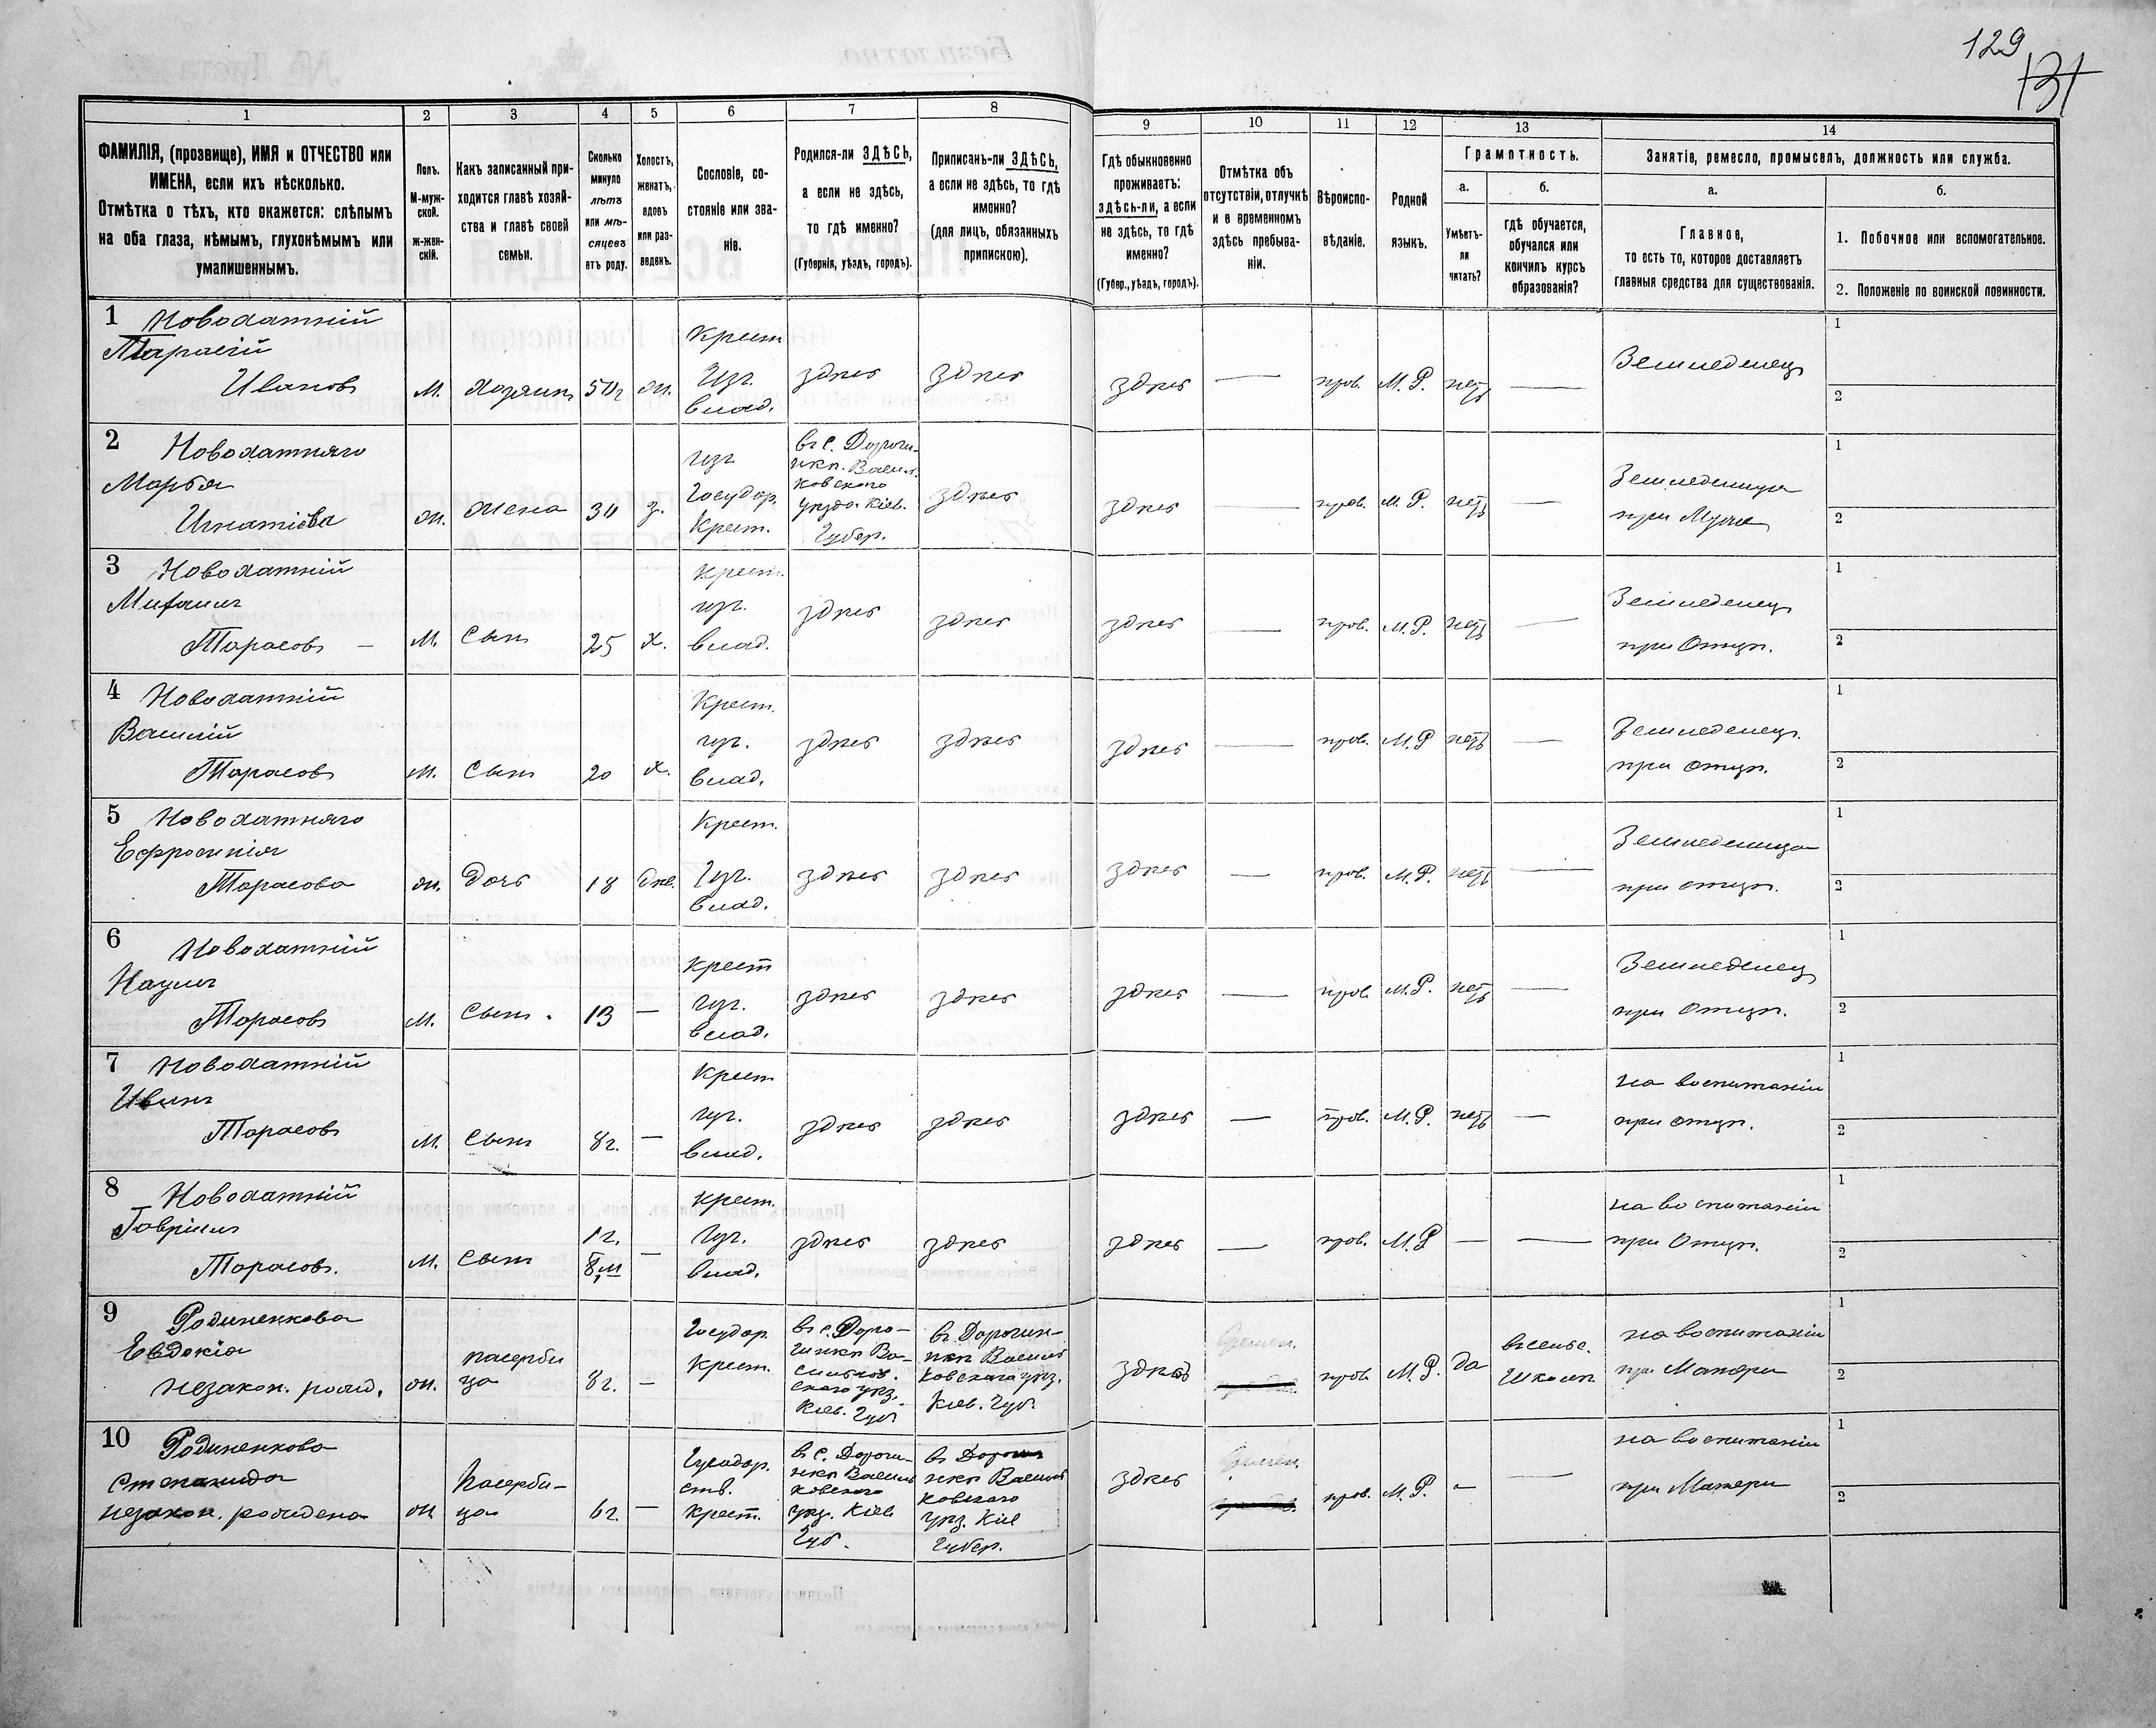 129
131
1
2
3
4
5
6
7
8
9
10
11
12
13
14
ФАМИЛІЯ, (прозвище), ИМЯ и ОТЧЕСТВО или
ИМЕНА, если ихъ нѣсколько.
Отмѣтка о тѣхъ, кто окажется: слѣпымъ
на оба глаза, нѣмымъ, глухонѣмымъ или
умалишеннымъ.
Полъ.
М-муж-
ской.
ж-жен-
скій.
Какъ записанный при-
ходится главѣ хозяй-
ства и главѣ своей
семьи.
Сколько
минуло
лѣтъ
или мѣ-
сяцевъ
отъ роду.
Холостъ,
женатъ,
вдовъ
или раз-
веденъ.
Сословіе, со-
стояніе или зва-
ніе.
Родился-ли ЗДѢСЬ,
а если не здѣсь,
то гдѣ именно?
(Губернія, уѣздъ, городъ).
Приписанъ-ли ЗДѢСЬ,
а если не здѣсь, то гдѣ
именно?
(для лицъ, обязанныхъ
припискою).
Гдѣ обыкновенно
проживаетъ:
здѣсь-ли, а если
не здѣсь, то гдѣ
именно?
(Губер., уѣздъ, городъ).
Отмѣтка объ
отсутствіи, отлучкѣ
и о временномъ
здѣсь пребыва-
ніи.
Вѣроиспо-
вѣданіе.
Родной
языкъ.
Грамотность.
а.
Умѣетъ-
ли
читать?
б.
гдѣ обучается,
обучался или
кончилъ курсъ
образованія?
Занятіе, ремесло, промыселъ, должность или служба.
а.
Главное,
то есть то, которое доставляетъ
главныя средства для существованія.
б.
1. Побочное или вспомогательное.
2. Положеніе по воинской повинности.
1 Новохатній
Тарасій
Ивановъ
М. Хозяинъ ж.
Крест
изъ
влад.
здѣсь здѣсь здѣсь — прав. М.Р. нетъ —
Земледѣлецъ
1
2
2 Новохатняго
Марья
Игнатіева
ж. жена з.
изъ
Государ.
Крест.
въ с. Дороги-
нкѣ. Василь-
ковскаго
уѣзда Кіев.
Губер.
здѣсь здѣсь — прав. М.Р. нетъ —
Земледѣлица
при Мужѣ
1
2
3 Новохатній
Михаилъ
Тарасовъ —
М. Сынъ 25 х.
Крест.
изъ
влад.
здѣсь здѣсь здѣсь — прав. М.Р. нетъ —
Земледѣлецъ
при Отцѣ.
1
2
4 Новохатній
Василій
Тарасовъ
М. Сынъ 20 х.
Крест.
изъ
влад.
здѣсь здѣсь здѣсь — прав. М.Р нетъ —
Земледѣлецъ.
при отцѣ.
1
2
5 Новохатняго
Ефросинія
Тарасова
ж. дочь 18 дѣв.
Крест.
изъ
влад.
здѣсь здѣсь здѣсь — прав. М.Р. нетъ —
Земледѣлица
при отцѣ.
1
2
6 Новохатній
Наумъ
Тарасовъ
М. Сынъ. 13 —
Крест
изъ
влад.
здѣсь здѣсь здѣсь — прав М.Р. нетъ —
Земледѣлецъ
при Отцѣ.
1
2
7 Новохатній
Тарасовъ
М. Сынъ 8г. —
Крест
изъ
влад.
здѣсь здѣсь здѣсь — прав. М.Р. нетъ —
на воспитаніи
при отцѣ.
1
2
8 Новохатній
Гавріилъ
Тарасовъ.
М. Сынъ
1г.
8 м —
Крест.
изъ
влад.
здѣсь здѣсь здѣсь — прав. М.Р — —
на воспитаніи
при Отцѣ.
1
2
9 Родиненкова
Евдокія
незакон. рожд.
ж.
пасерби
ца
8г. —
Государ.
Крест.
въ с. Доро-
гинкѣ Ва-
сильков.
скаго уѣз.
Кіев. Губ
въ Дорогин-
нкѣ Василь
ковскаго уѣз.
Кіев. Губ.
здѣсь
прав М.Р. да
въ сельс.
Школѣ
на воспитаніи
при Матери
1
2
10 Родиненкова
Степанида
незакон. рождена
ж
Пасерби-
ца
6г. —
Государ.
ств.
Крест.
въ с. Дороги-
нкѣ Василь
ковскаго
уѣз. Кіев
Губ.
въ Дороги
нкѣ Василь
ковскаго
уѣз. Кіев
Губер.
здѣсь
прав. М.Р. — —
на воспитаніи
при Матери
1
2